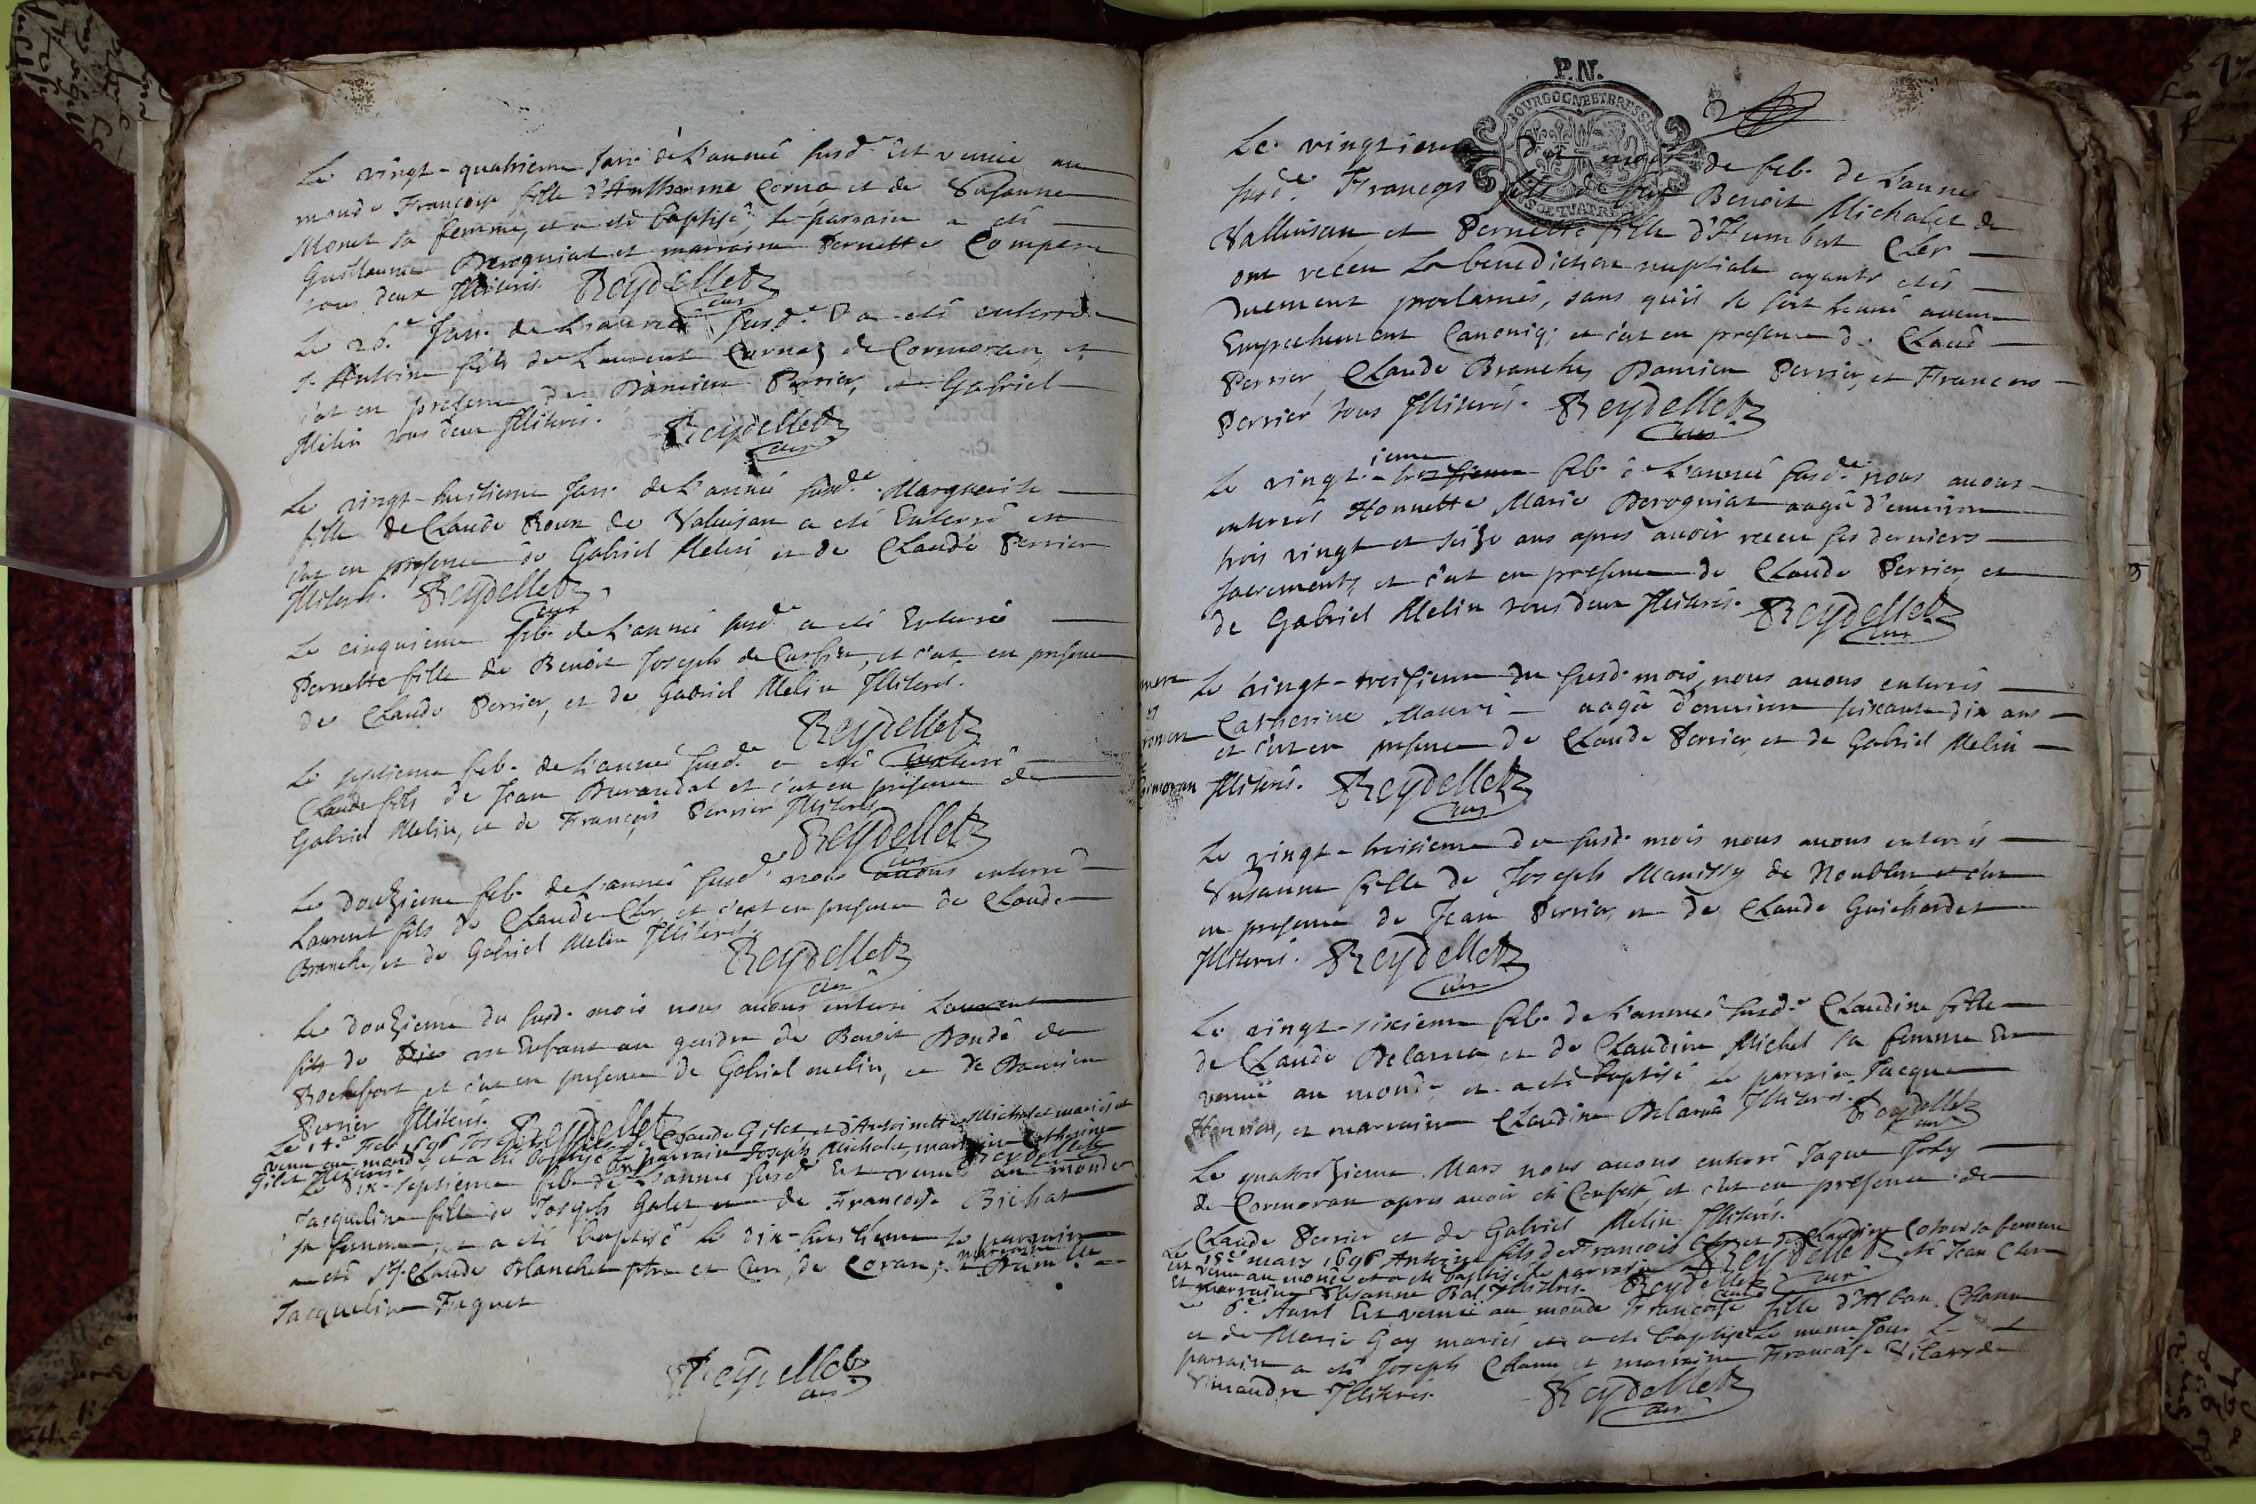 Le vingt-quatrieme Janr. de L'année susd.e est venüe au
monde Françoise fille d'Anthoine Corna et de Susanne
Monet sa femme, et a eté baptisé, le parrain a eté
Guillaume Derogniat et marraine Pernette Compere
tous deux Illiterés. Reydellet
curé
Le 26.e Janr. de L'année susd.e a eté enterré
Antoine fils de Laurent Carnaz de Cormoran, et
c'at en presence de Damien Perrier, et Gabriel
Melin tous deux Illiterés. Reydellet
curé
Le vingt-huitieme Janr. de L'année susd.e Marguerite
fille de Claude Roux de Valuisan a eté Enterré et
c'at en presence de Gabriel Melin, et de Claude Perrier
Illiterés. Reydellet
curé
Le cinquieme feb. de L'année susd.e a eté Enterré
Pernette fille de Benoit Joseph de, et c'at en presence
de Claude Perrier, et de Gabriel Melin Illiterés.
Reydellet
curé
Le septieme feb. de L'année susd.e a eté enterré
Claude fils de Jean Durandal et c'at en presence de
Gabriel Melin, et de François Perrier Illiterés
Reydellet
curé
Le douzieme feb. de L'année susd.e nous auons enterré
Laurent fils de Claude Cler, et c'est en presence de Claude
Branche, et de Gabriel Melin Illiterés.
Reydellet
curé
Le douzieme du susd. mois nous auons enterré Laurent
fils de un Enfant au gendre de Benoit Dondé de
Rochefort et c'at en presence de Gabriel melin, et de Damien
Perrier Illiterés. Reydellet
Le 14.e Feb. 1696 Joseph fils de Claude Gilet et d'Antoinette Michalet mariés est
venu au monde, et a eté baptisé le parrain Joseph Michalet, marraine Catherine
Gilet Illiterés. Reydellet
Le dix-septieme feb. de L'année susd.e Est venüe au monde
Jacqueline fille de Joseph Galet et de Françoise Bichat
sa femme, et a eté baptisé le dix-huitieme le parrain
a eté Claude Blanchet ptre et Curé de Coran, et marraine
Jacqueline Faguet
Reydellet
curé
P.N.
BOURGOGNE ET BRESSE
2
Le vingtieme du mois de feb. de L'année
susd.e François fils de Benoit Michalet de
Valluisan et Pernette fille d'Humbert Cler
ont receu La benediction nuptiale ayants etés
Duement proclamés, sans qu'il se soit trouué aucun
Empechement Canoniq; et c'at en presence de Claude
Perrier, Claude Branche, Damien Perrier, et François
Perrier tous Illiterés. Reydellet
curé
Le vingt-ieme feb. de L'année susd.e nous auons
enterrés Honnette Marie Derogniat aagée d'enuiron
trois vingt et seize ans apres auoir receu ses derniers
sacrements, et c'at en presence de Claude Perrier, et
de Gabriel Melin tous deux Illiterés. Reydellet
curé
Le vingt-troisieme du susd. mois, nous auons enterrés
Catherine Mauri aagée d'enuiron soixante dix ans
et c'at en presence de Claude Perrier, et de Gabriel Melin
Illiterés. Reydellet
curé
Le vingt-troisieme du susd. mois nous auons enterrés
Susanne fille de Joseph Manissy de
en presence de Jean Perrier, et de Claude Guichardet
Illiterés. Reydellet
curé
Le vingt-sixieme feb. de L'année susd.e Claudine fille
de Claude Delarna et de Claudine Michel sa femme Est
venüe au monde et a eté baptisé le parrain Jacque
et marraine Claudine Delarna Illiterés. Reydellet
curé
Le quatorzieme Mars nous auons enterré Jaque Joly
de Cormoran apres auoir eté Confessé et c'at en presence de
Claude Perrier et de Gabriel Melin Illiterés.
Reydellet
curé
Le 15.e mars 1696 Antoine fils de François Cler et de Claudine sa femme
est venu au monde et a eté baptisé, le parrain a eté Jean Cler
et marraine Susanne Bal Illiterés. Reydellet
curé
Le 6.e Auril Est venüe au monde Françoise fille d'Alban Chanu
et de Marie Gay mariés et a eté baptisée le meme Jour Le
parrain a eté Joseph Chanu et marraine Françoise
Illiterés. Reydellet
curé